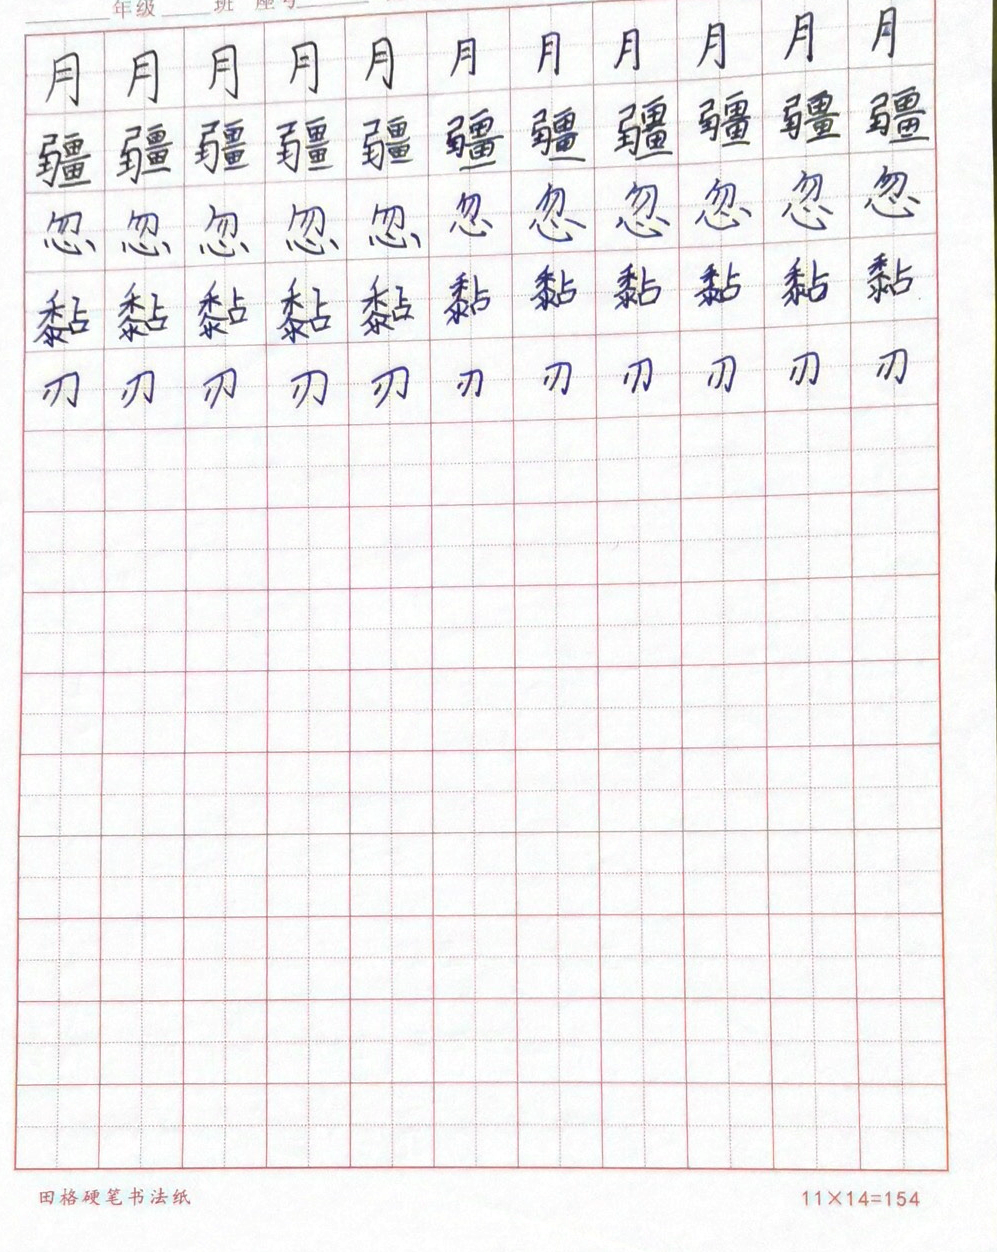 年级 班 座号
月月月月月月月月月月月
疆疆疆疆疆疆疆疆疆疆疆
忽忽忽忽忽忽忽忽忽忽忽
黏黏黏黏黏黏黏黏黏黏黏
刃刃刃刃刃刃刃刃刃刃刃
田格硬笔书法纸 11×14=154